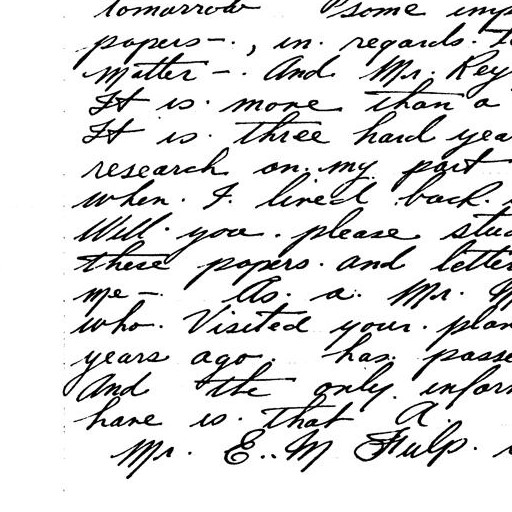 tomorrow some imp
papers-., in. regards. to
matter -. And Mr. Key
It is. more than a
It is. three hard yea
research on. my part
when. I. lived back.
Will. you. please stud
these papers. and letter
me -. As. a. Mr. M
who. Visited your. plan
years ago. has. passe
And the only. infor
have is. that A
Mr. E.. M Fulp.